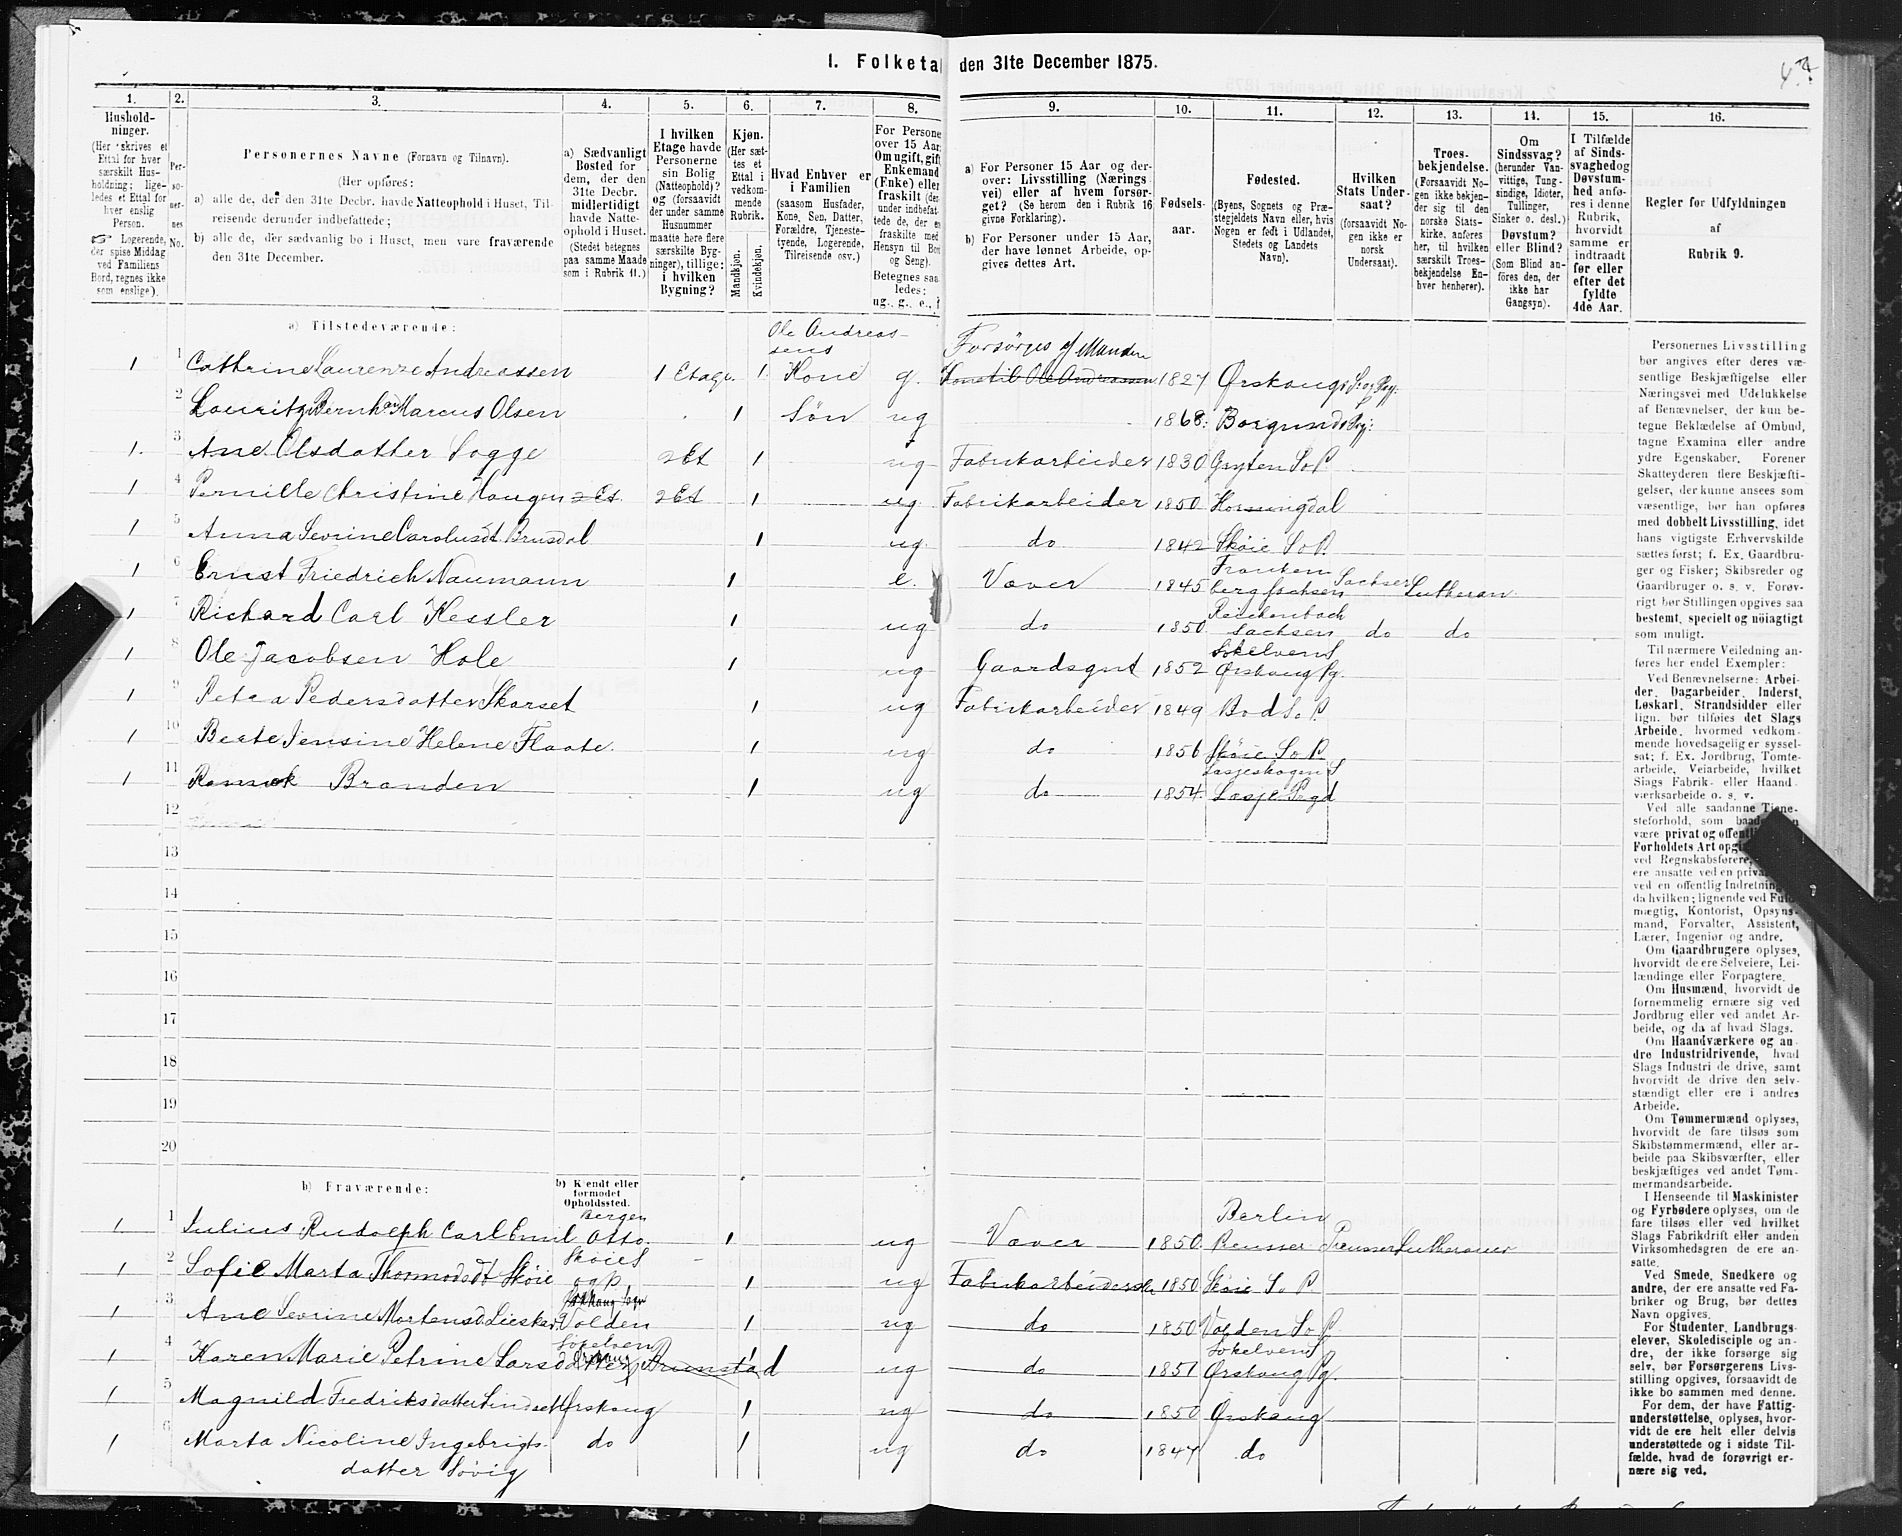 1. Folketal den 31te December 1875.
1.
2.
3.
4.
5.
6.
7.
8.
9.
10.
11.
12.
13.
14.
15.
16.
Hushold-
ninger.
(Her skrives et
Ettal for hver
særskilt Hus-
holdning; lige-
ledes et Ettal for
hver enslig
Person.
☞ Logerende,
der spise Middag
ved Familiens
Bord, regnes ikke
som enslige).
Per-
so-
ner-
nes
No.
Personernes Navne (Fornavn og Tilnavn).
(Her opføres:
a) alle de, der den 31te Decbr. havde Natteophold i Huset, Til-
reisende derunder indbefattede;
b) alle de, der sædvanlig bo i Huset, men vare fraværende
den 31te December.
a) Sædvanligt
Bosted for
dem, der den
31te Decbr.
midlertidigt
havde Natte-
ophold i Huset.
(Stedet betegnes
paa samme Maade
som i Rubrik 11.)
I hvilken
Etage havde
Personerne
sin Bolig
(Natteophold)?
og (forsaavidt
der under samme
Husnummer
maatte høre flere
særskilte Byg-
ninger), tillige:
i hvilken
Bygning?
Kjøn.
(Her sæt-
tes et
Ettal i
vedkom-
mende
Rubrik.
Mandkjøn.
Kvindekjøn.
Hvad Enhver er
i Familien
(saasom Husfader,
Kone, Søn, Datter,
Forældre, Tjeneste-
tyende, Logerende,
Tilreisende osv.)
For Persone
over 15 Aar
Om ugift, gift
Enkemand
(Enke) eller
fraskilt (der-
under indbefat-
tede de, der e
fraskilte med
Hensyn til Bo
og Seng).
Betegnes saa
ledes:
ug., g., e.,
a) For Personer 15 Aar og der-
over: Livsstilling (Nærings
vei) eller af hvem forsør-
get? (Se herom den i Rubrik 16
givne Forklaring).
b) For Personer under 15 Aar,
der have lønnet Arbeide, op-
gives dettes Art.
Fødsels-
aar.
Fødested.
(Byens, Sognets og Præ-
stegjeldets Navn eller, hvis
Nogen er født i Udlandet,
Stedets og Landets
Navn).
Hvilken
Stats Under-
saat?
(forsaavidt No-
gen ikke er
norsk
Undersaat).
Troes-
bekjendelse.
(Forsaavidt No-
gen ikke bekjen-
der sig til den
norske Stats-
kirke, anføres
her, til hvilken
særskilt Troes-
bekjendelse En-
hver henhører).
Om
Sindssvag?
(herunder Van-
vittige, Tung-
sindige, Idioter,
Tullinger,
Sinker o. desl.)
Døvstum?
eller Blind?
(Som Blind an-
føres den, der
ikke har
Gangsyn).
I Tilfælde
af Sinds-
svaghed og
Døvstum-
hed anfø-
res i denne
Rubrik,
hvorvidt
samme er
indtraadt
før eller
efter det
fyldte
4de Aar.
Regler for Udfyldningen
af
Rubrik 9.
a) Tilstedeværende:
Ole Andreas-
sens
Forsørges af Manden
1 1 Cathrine Laurenze Andreassen 1 Etage. 1 Kone g. 1827 Ørskougs Sog Pgj.
2 Louritz Bernh. Marcus Olsen 1 Søn ug 1868. Borgund
1. 3 Ane Olsdatter Sogge 2 Et 1 ug Fabrikarbeider 1830 Grytten S o P.
1 4 Pernille Christine Haugen 2 Et 2 Et 1 ug. Fabrikarbeider 1850 Horningdal
1 5 Anna Sevrine Carolusdt Brusdal 1 ug. do 1842 Skøie S o P.
1 6 Ernst Friedrich Naumann 1 e. Væver 1845 Franken
berg Sachsen Sachser Lutheran
1 7 Richard Carl Kessler 1 ug do 1850 Reichenbach
Sachsen do do
1 8 Ole Jacobsen Hole 1 ug Gaardsgut 1852 Søkelvens
Ørskoug Pg.
1 9 Petra Pedersdatter Skarset 1 ug Fabrikarbeider 1849 Bod S o P.
1 10 Beate Jensine Helene Flaate. 1 ug do 1856 Skøie S o P.
1 11 Branden 1 ug do 1854 Læsjeskogen S
Læsje Pgd
12
13
14
15
16
17
18
19
20
b) Fraværende:
b) Kjendt eller
formodet
Opholdssted.
1 1 Julius Rudolph Carl Emil Otto. Bergen 1 ug Væver 1850 Berlin
Preusser Preusser Lutheraner
1 2 Sofie Marta Thormodsdt Skøie Skøie S
og P. 1 ug 1850 Skøie S o P.
1 3 Ane Sevrine Mortensd Lieskar Volden 1 ug do 1850 Volden S o P.
1 4 Karen Marie Petrine Larsdatter Brunstad Søkelven 1 ug do 1851 Søkelvens
Ørskoug Pg.
1 5 Magnild Fredriksdatter Lindset Ørskoug 1 ug do 1850 Ørskoug
1 6 Marta Nicoline Ingebrigts- do 1 ug do 1847 do
datter Søvig
Personernes Livsstilling
bør angives efter deres væ-
sentlige Beskjæftigelse eller
Næringsvei med Udelukkelse
af Benævnelser, der kun be-
tegne Beklædelse af Ombud,
tagne Examina eller andre
ydre Egenskaber. Forener
Skatteyderen flere Beskjæfti-
gelser, der kunne ansees som
væsentlige, bør han opføres
med dobbelt Livsstilling, idet
hans vigtigste Erhvervskilde
sættes først; f. Ex. Gaardbru-
ger og Fisker; Skibsreder og
Gaardbruger o. s. v. Forøv-
rigt bør Stillingen opgives saa
bestemt, specielt og nøiagtigt
som muligt.
Til nærmere Veiledning an-
føres her endel Exempler:
Ved Benævnelserne: Arbei-
der, Dagarbeider, Inderst,
Løskarl, Strandsidder eller
lign. bør tilføies det Slags
Arbeide, hvormed vedkom-
mende hovedsagelig er syssel-
sat; f. Ex. Jordbrug, Tomte-
arbeide, Veiarbeide, hvilket
Slags Fabrik- eller Haand-
værksarbeide o. s. v.
Ved alle saadanne Tjene-
steforhold, som
være privat og
Forholdets Art
ved Regnskabsførere,
ere ansatte ved en
ved en offentlig
da hvilken; lignende ved Fuld-
mægtig, Kontorist, Opsyns-
mand, Forvalter, Assistent,
Lærer, Ingeniør og andre.
Om Gaardbrugere oplyses,
hvorvidt de ere Selveiere, Lei-
lændinge eller Forpagtere.
Om Husmænd, hvorvidt de
fornemmelig ernære sig ved
Jordbrug eller ved andet Ar-
beide, og da af hvad Slags.
Om Haandværkere og an-
dre Industridrivende, hvad
Slags Industri de drive, samt
hvorvidt de drive den selv-
stændigt eller ere i andres
Arbeide.
Om Tømmermænd oplyses,
hvorvidt de fare tilsøs som
Skibstømmermænd, eller ar-
beide paa Skibsværfter, eller
beskjæftiges ved andet Tøm-
mermandsarbeide.
I Henseende til Maskinister
og Fyrbødere oplyses, om de
fare tilsøs eller ved hvilket
Slags Fabrikdrift eller anden
Virksomhedsgren de ere an-
satte.
Ved Smede, Snedkere og
andre, der ere ansatte ved Fa-
briker og Brug, bør dettes
Navn opgives.
For Studenter, Landbrugs-
elever, Skoledisciple og an-
dre, der ikke forsørge sig
selv, bør Forsørgerens Livs-
stilling opgives, forsaavidt de
ikke bo sammen med denne.
For dem, der have Fattig-
understøttelse, oplyses, hvor-
vidt de ere helt eller delvis
understøttede og i sidste Til-
fælde, hvad de forøvrigt er-
nære sig ved.